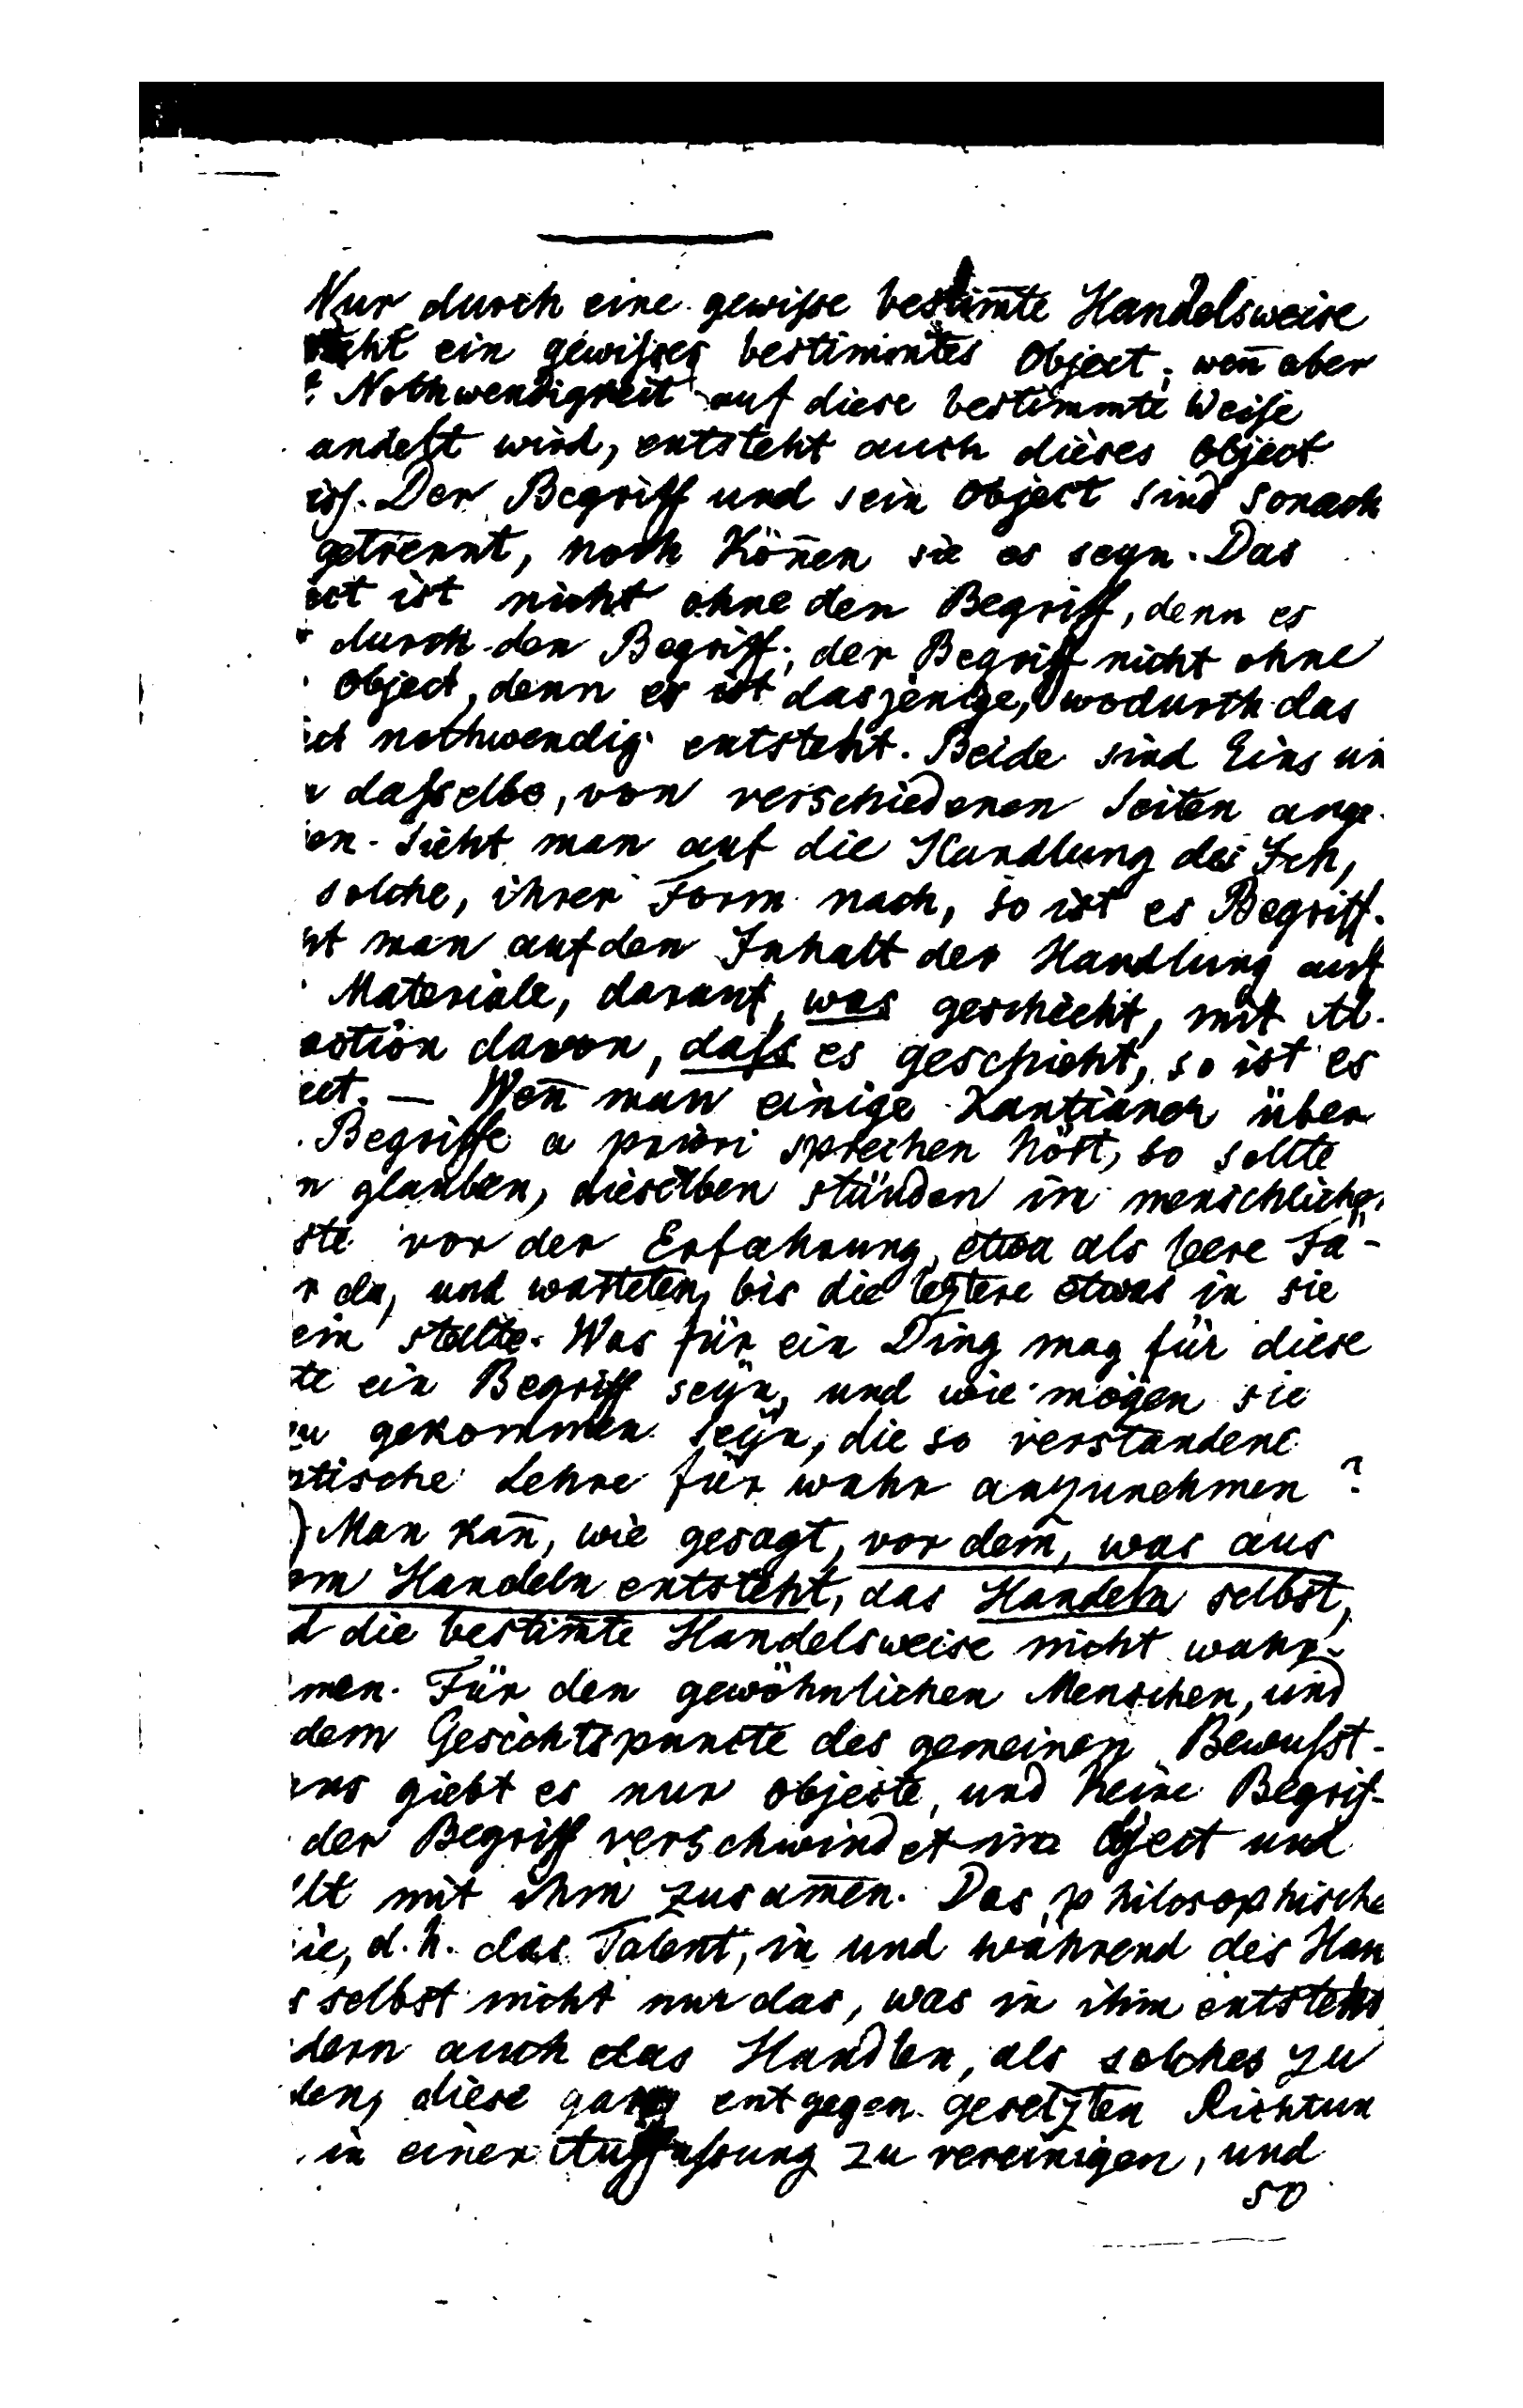 Nur durch eine gewiſse bestim̅te Handelsweise
teht ein gewiſses bestimmtes Object; wen̅ aber
t Nothwendigkeit auf diese bestimmte Weise
andelt wird, entsteht auch dieses Object
iſs. Der Begriff und sein Object sind sonach
getrennt, noch Kön̅en sie es seyn. Das
ect ist nicht ohne den Begriff, denn es
durch den Begriff; der Begriff nicht ohne
Object, denn er ist dasjenige, wodurch das
ect nothwendig entsteht. Beide sind Eins un
daſselbe, von verschiedenen Seiten ange-
en. Sieht man auf die Handlung des Ich,
solche, ihrer Form nach, so ist es Begriff.
ht man auf den Inhalt der Handlung auf
Materiale, darauf, was geschieht, mit Ab-
action davon, daſs es geschieht, so ist es
ect. — Wen̅ man einige Kantianer über
Begriffe a priori sprechen hört, so sollte
n glauben, dieselben stünden im menschlichen
ste vor der Erfahrung, etwa als leere Fä-
r da, und warteten, bis die leztere etwas in sie
ein stellte. Was für ein Ding mag für diese
te ein Begriff seyn, und wie mögen sie
zu gekommen seyn, die so verstandene
ntische Lehre für wahr anzunehmen?
) Man kan̅, wie gesagt, vor dem, was aus
em Handeln entsteht, das Handeln selbst,
d die bestim̅te Handelsweise nicht wahr-
men. Für den gewöhnlichen Menschen, und
dem Gesichtspuncte des gemeinen Bewuſst-
ns giebt es nur Objecte, und keine Begrif-
der Begriff verschwindet im Object und
llt mit ihm zusam̅en. Das philosophische
ie, d.h. das Talent, in und während des Han
s selbst nicht nur das, was in ihm entsteht,
dern auch das Handlen, als solches zu
den, diese ganz entgegen gesetzten Richtun
in einer Auffaſsung zu vereinigen, und
so